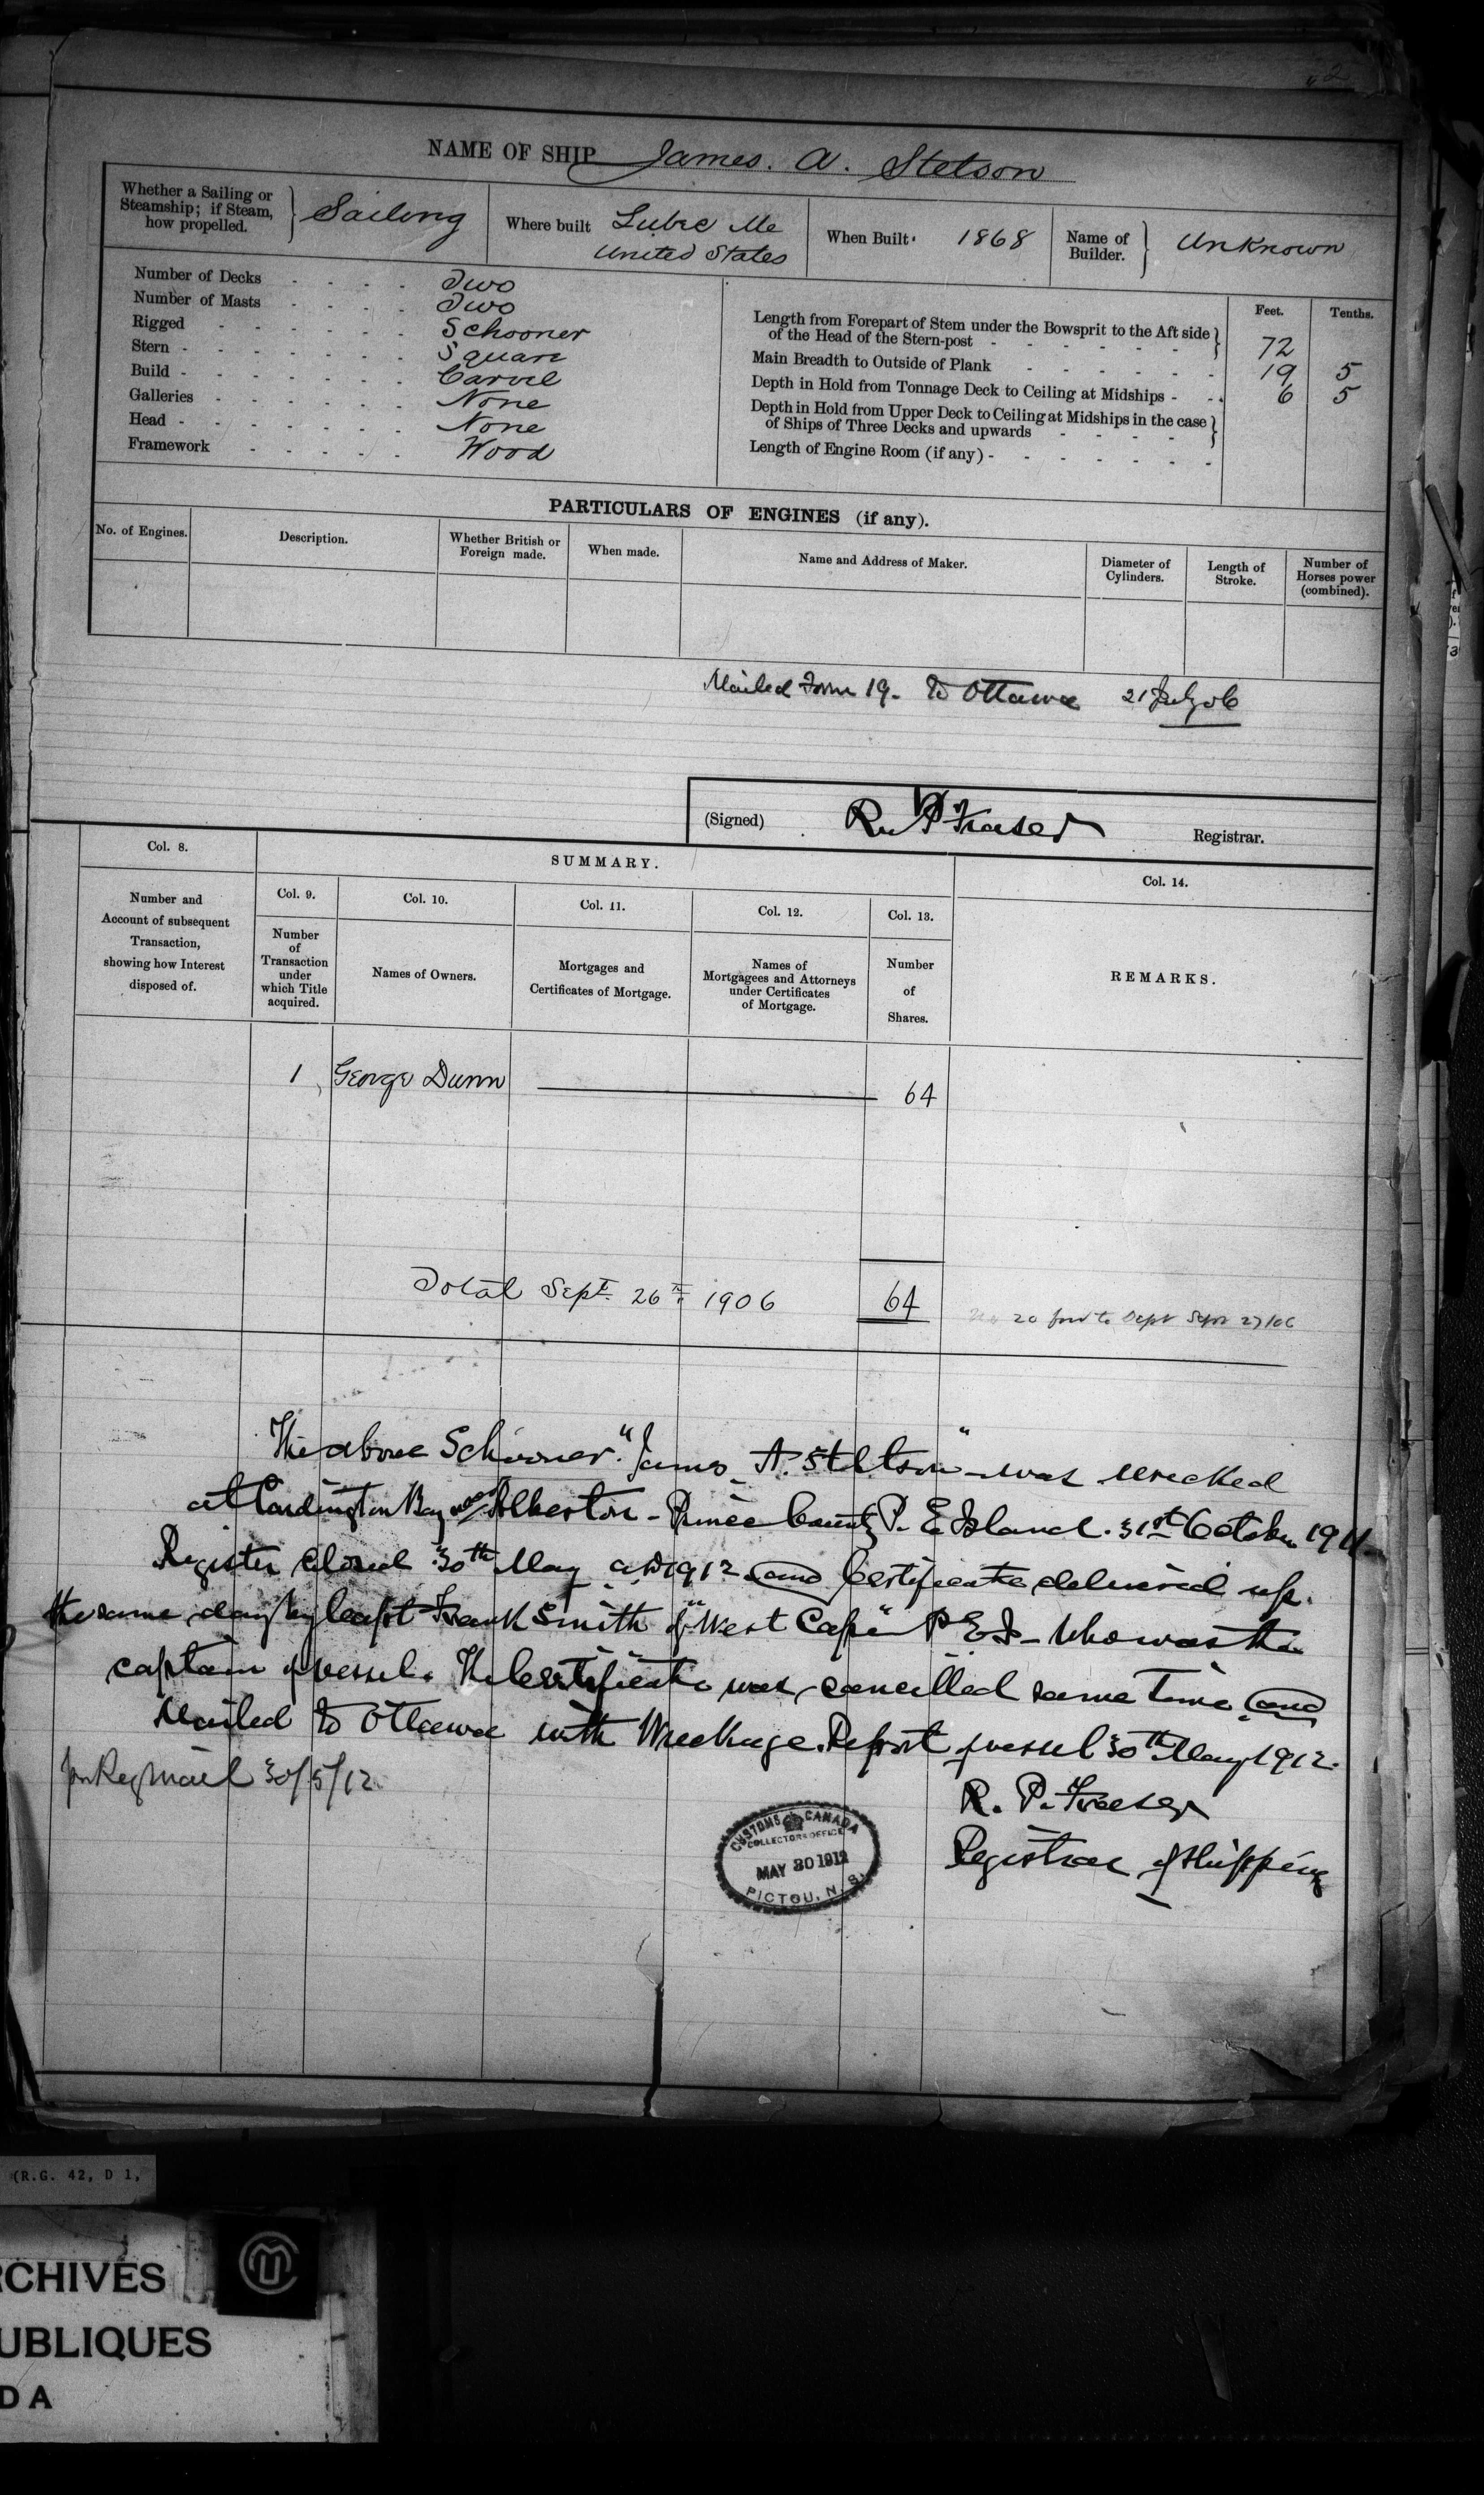 NAME OF SHIP James. A. Stetson
Whether a Sailing or Steamship; if Steam, how propelled. Sailing
Where built Lubec Me United States
When Built 1868
Name of Builder. Unknown
Number of Decks Two
Number of Masts Two
Rigged Schooner
Stern Square
Build Carvel
Galleries None
Head None
Framework Wood
Feet. Tenths.
Length from Forepart of Stem under the Bowsprit to the Aft side of the Head of the Stern-post 72
Main Breadth to Outside of Plank 19 5
Depth in Hold from Tonnage Deck to Ceiling at Midships 6 5
Depth in Hold from Upper Deck to Ceiling at Midships in the case of Ships of Three Decks and upwards
Length of Engine Room (if any)
PARTICULARS OF ENGINES (if any).
No. of Engines. Description. Whether British or Foreign made. When made. Name and Address of Maker. Diameter of Cylinders. Length of Stroke. Number of Horses power (combined).
Mailed Form 19 - to Ottawa 21 July 06
(Signed) R P Fraser Registrar.
Col. 8. SUMMARY. Col. 14.
Col. 9. Col. 10. Col. 11. Col. 12. Col. 13.
Number and Account of subsequent Transaction, showing how Interest disposed of.
Number of Transaction under which Title acquired.
Names of Owners.
Mortgages and Certificates of Mortgage.
Names of Mortgagees and Attorneys under Certificates of Mortgage.
Number of Shares.
REMARKS.
1 George Dunn 64
Total Sept. 26th 1906 64
20 for to Dept Sept 27/06
The above Schooner "James A. Stetson" was wrecked
at Cardington Bay near Alberton - Prince County P. E Island. 31st October 1911
Register closed 30th May AD 1912 and Certificate delivered up.
the same day by Capt Frank Smith of "West Cape" P E I - who was the
captain of vessel. The Certificate was cancelled same time and
Mailed to Ottawa with Wreckage Report of vessel 30th May 1912.
Reg Mail 30/5/12
R. P. Fraser
Registrar of Shipping
CUSTOMS CANADA
COLLECTORS OFFICE
MAY 30 1912
PICTOU, N. S.
(R.G. 42, D 1,
RCHIVES
UBLIQUES
DA